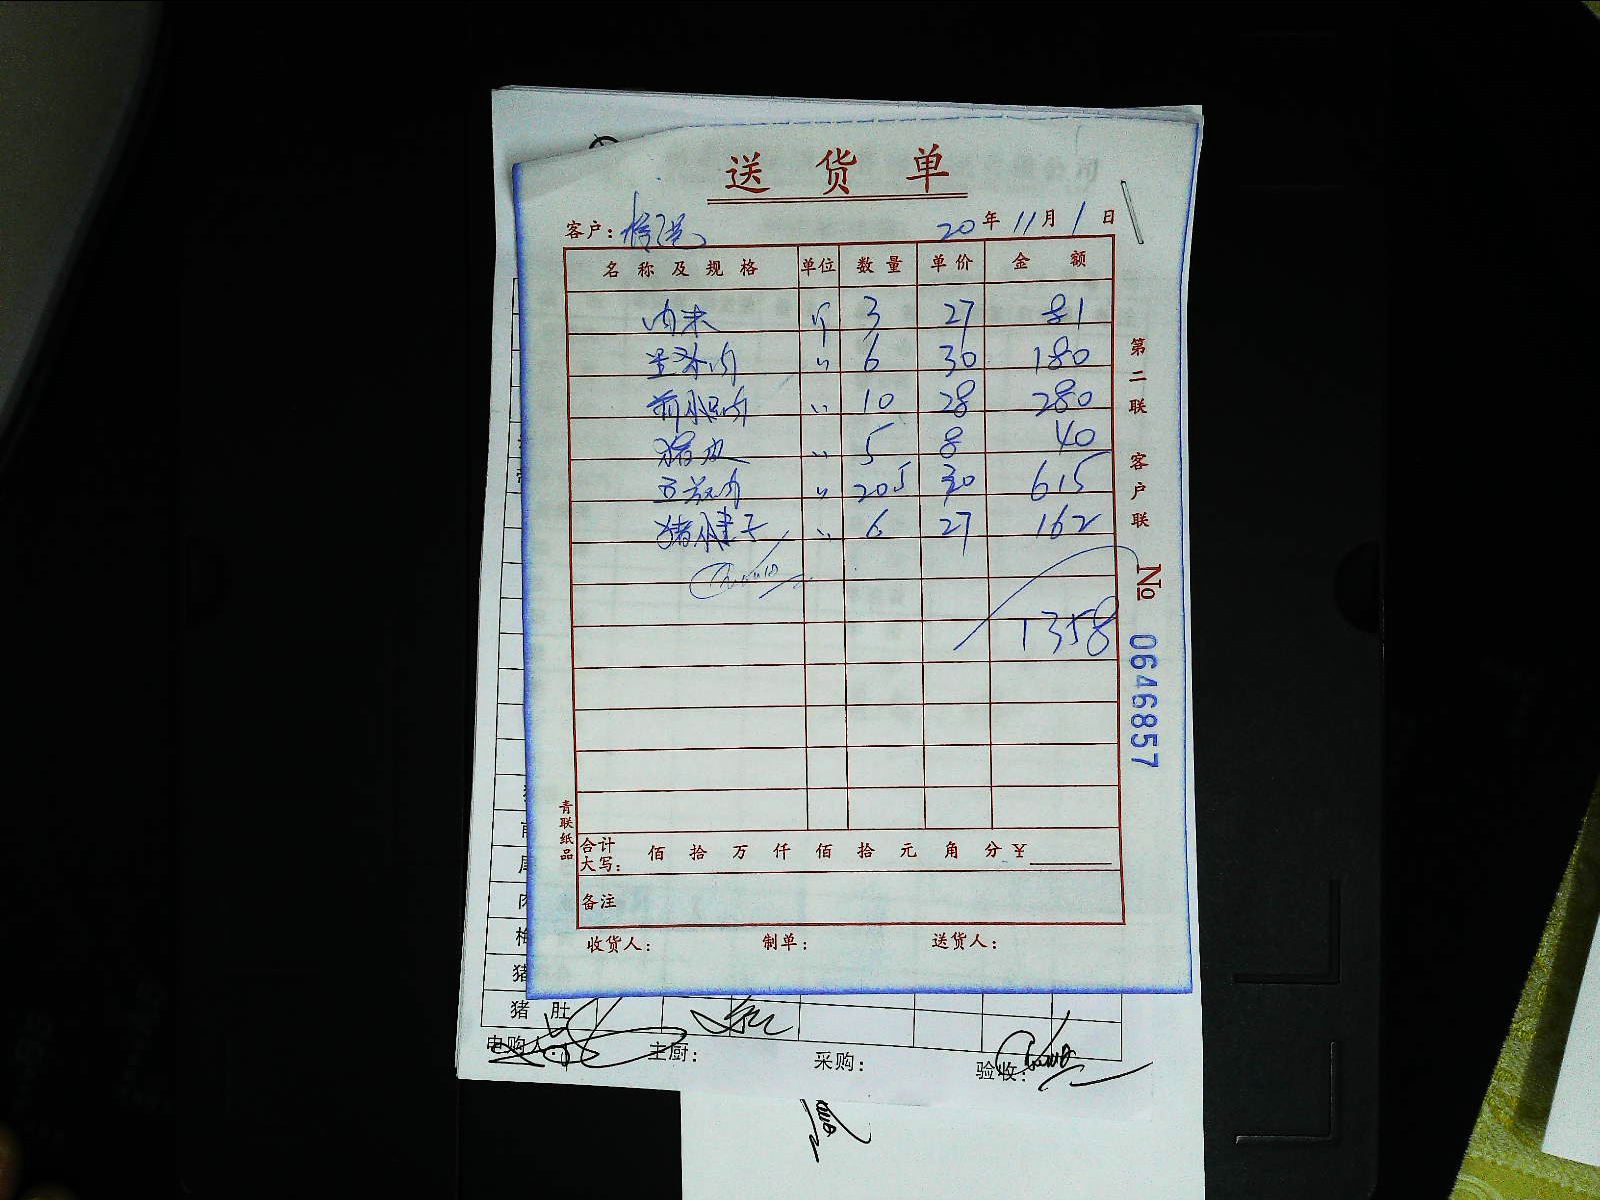 送货单
客户： 20年11月1日
名称及规格 单位 数量 单价 金额
肉末 斤 3 27 81
里脊肉 〃 6 30 180
前腿肉 〃 10 28 280
猪皮 〃 5 8 40
五花肉 〃 20.5 30 615
猪腱子 〃 6 27 162
1358
合计大写： 佰 拾 万 仟 佰 拾 元 角 分 ¥
备注
收货人： 制单： 送货人：
第二联 客户联
No 0646857
青联纸品
梅
猪
猪肚
申购人 主厨： 采购： 验收：